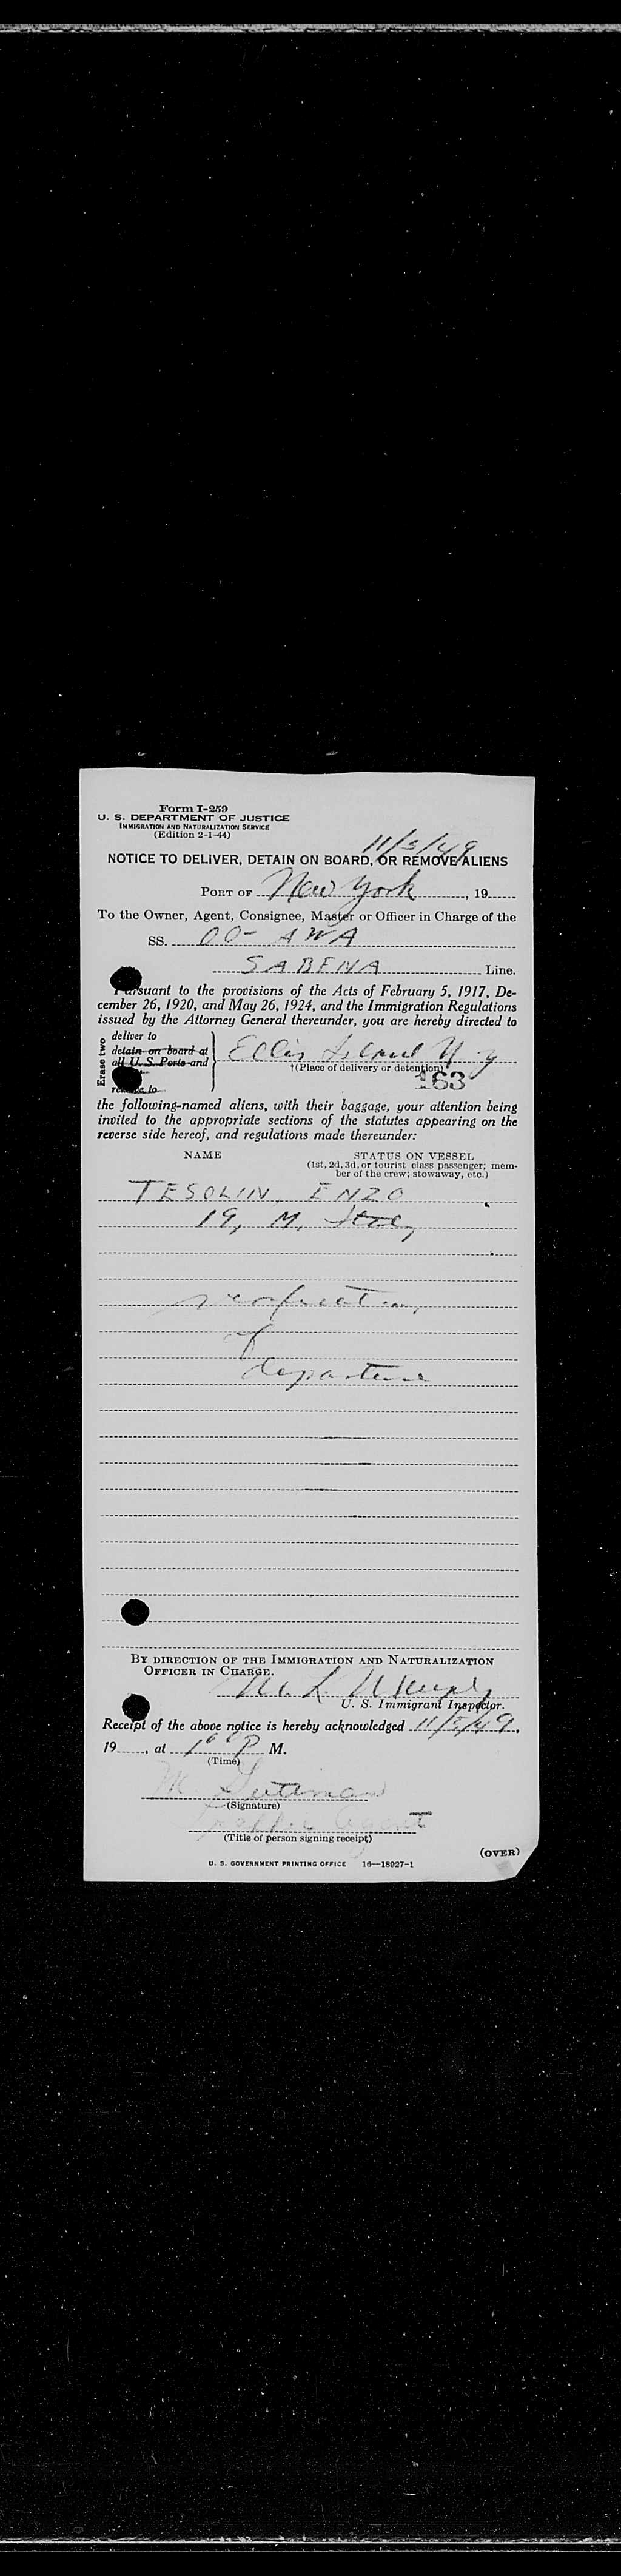 Form I-259
U. S. DEPARTMENT OF JUSTICE
IMMIGRATION AND NATURALIZATION SERVICE
(Edition 2-1-44)
11/5/49
NOTICE TO DELIVER, DETAIN ON BOARD, OR REMOVE ALIENS
PORT OF New York, 19
To the Owner, Agent, Consignee, Master or Officer in Charge of the
SS. OO-AWA
SABENA Line.
Pursuant to the provisions of the Acts of February 5, 1917, De-
cember 26, 1920, and May 26, 1924, and the Immigration Regulations
issued by the Attorney General thereunder, you are hereby directed to
Erase two
deliver to
detain on board at
all U. S. Ports and
remove to
Ellis Island N.y
†(Place of delivery or detention)
163
the following-named aliens, with their baggage, your attention being
invited to the appropriate sections of the statutes appearing on the
reverse side hereof, and regulations made thereunder:
NAME STATUS ON VESSEL
(1st, 2d, 3d, or tourist class passenger; mem-
ber of the crew; stowaway, etc.)
TESOLIN, ENZO
19, M, Italy
verification
of
departure
BY DIRECTION OF THE IMMIGRATION AND NATURALIZATION
OFFICER IN CHARGE.
M. L.
U. S. Immigrant Inspector.
Receipt of the above notice is hereby acknowledged 11/5/49,
19, at 1 00 P M.
(Time)
M. Gutman
(Signature)
Agent
(Title of person signing receipt)
(OVER)
U. S. GOVERNMENT PRINTING OFFICE 16—18927-1